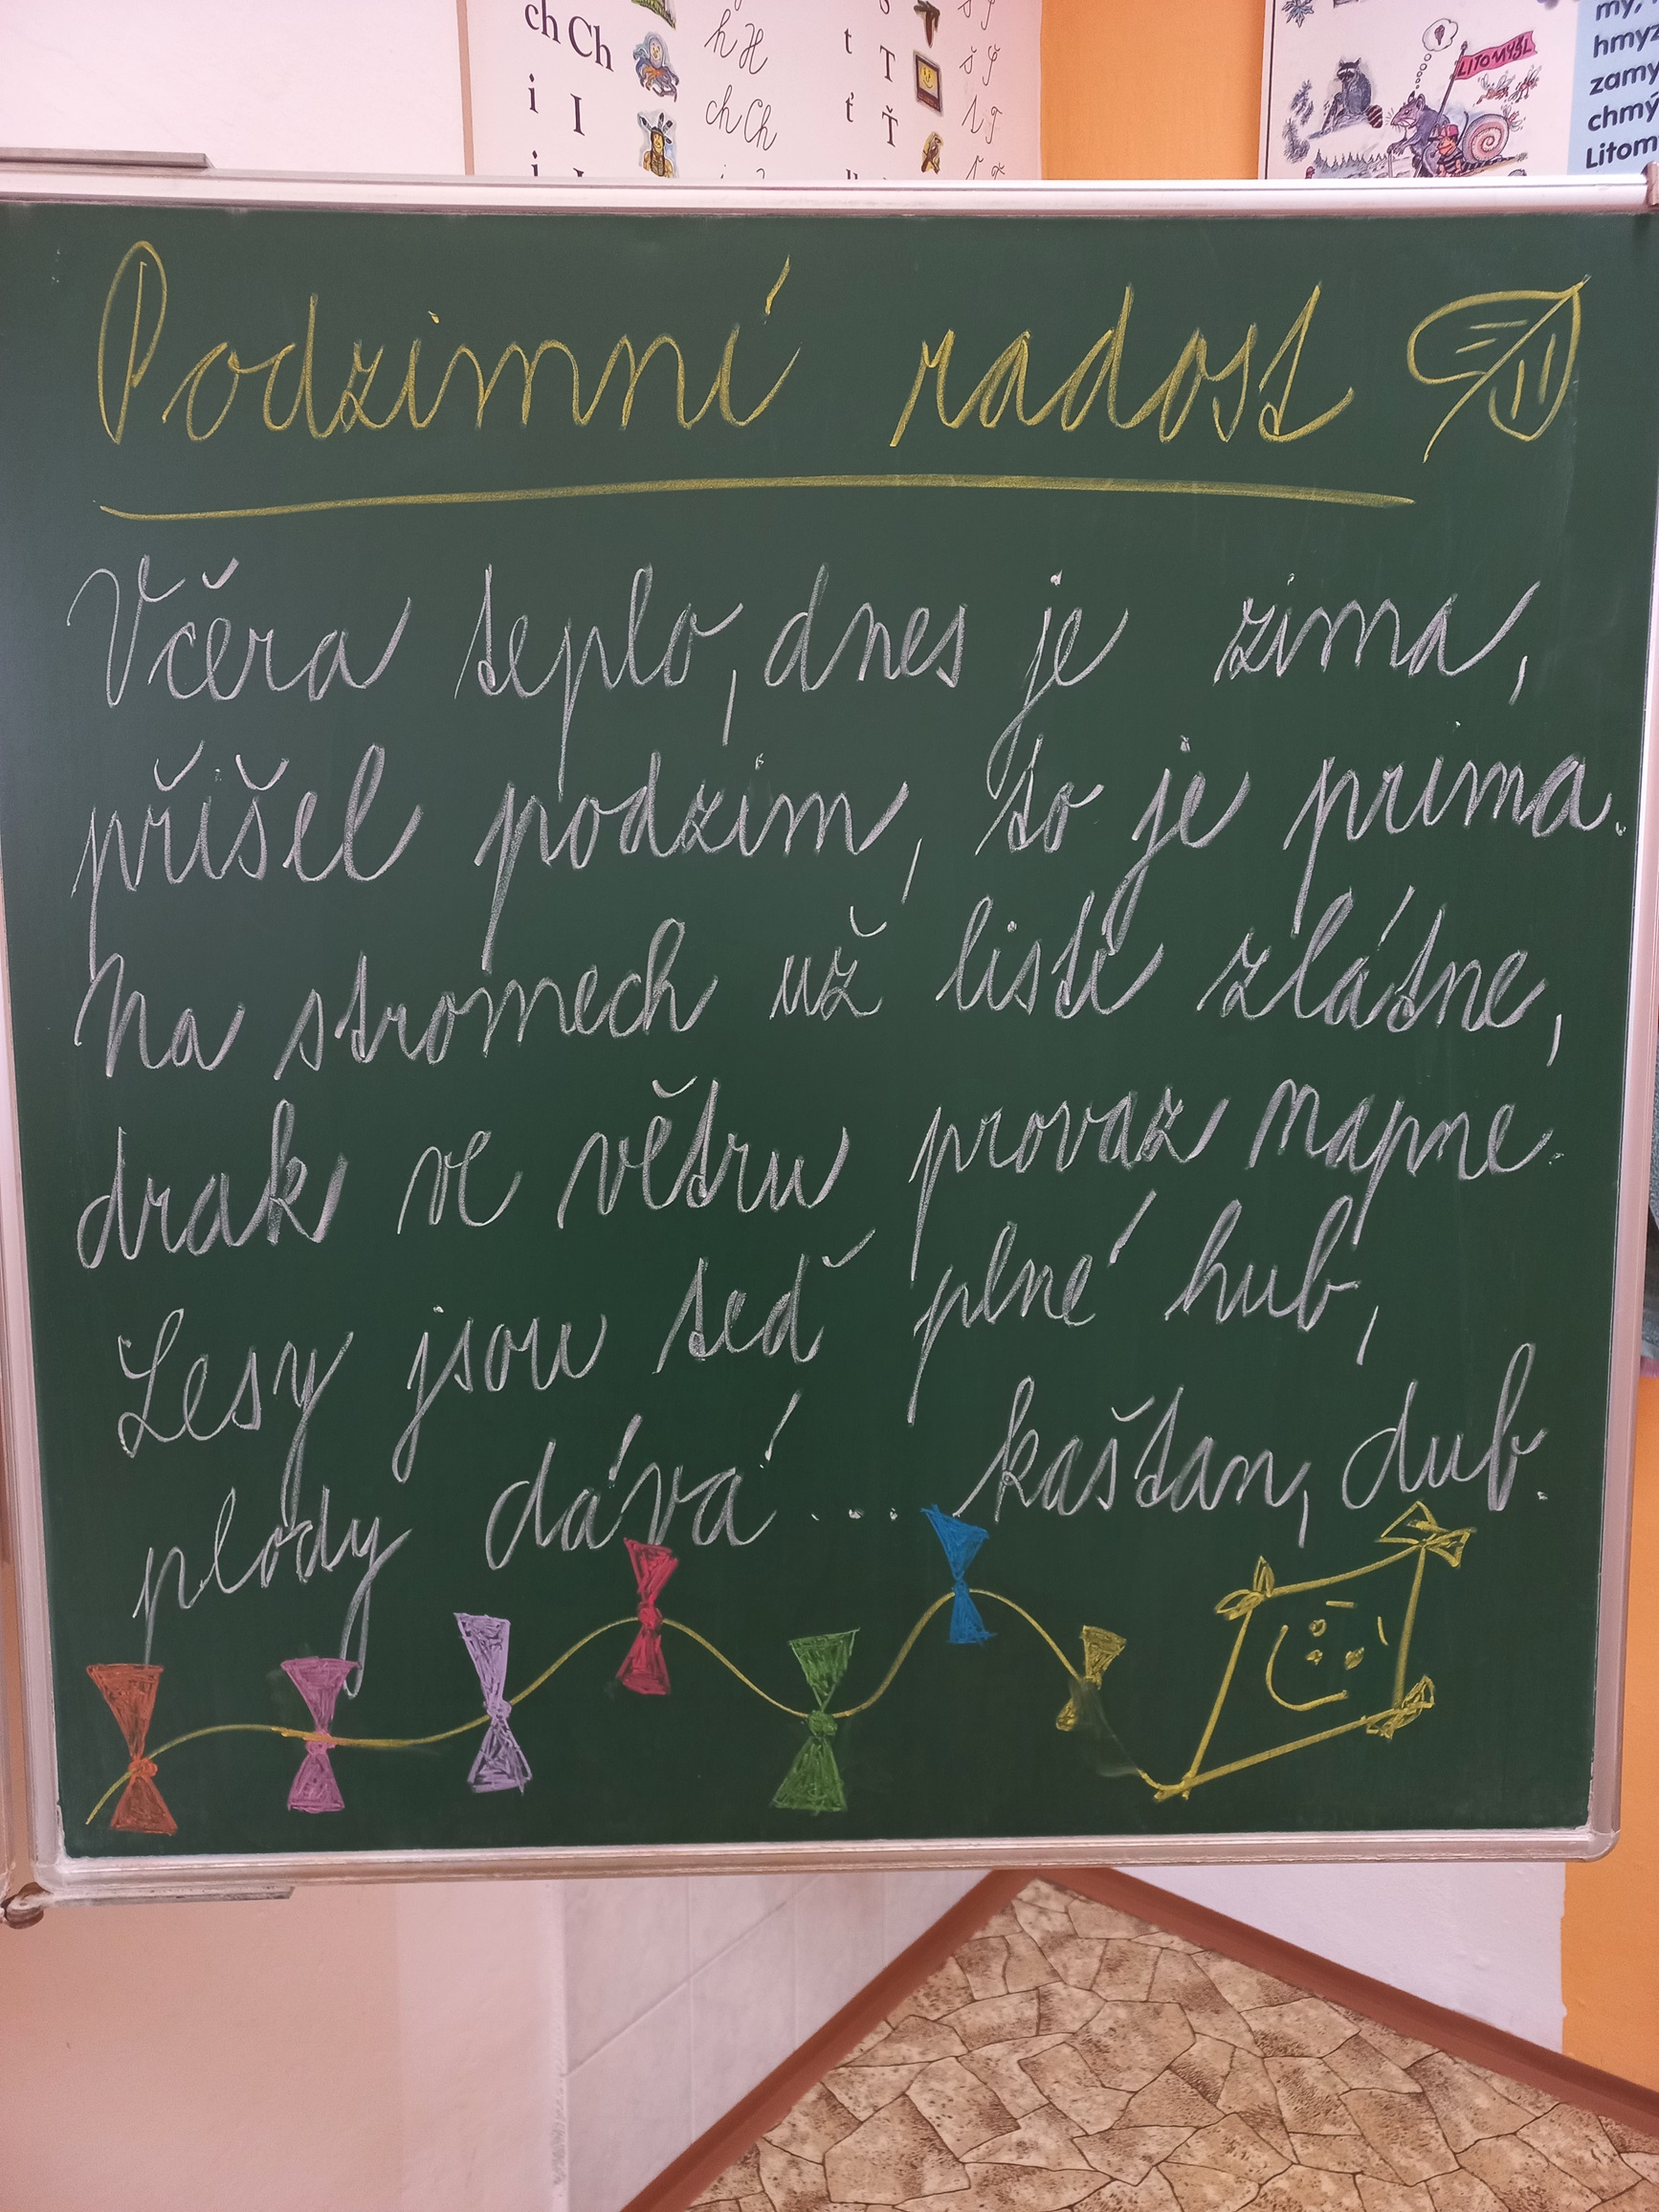 ch Ch
i I
h H
ch Ch
t T
ť Ť
LITOMYŠL
hmyz
Podzimní radost
Včera teplo, dnes je zima,
přišel podzim, to je prima.
Na stromech už listí zlátne,
drak ve větru provaz napne.
Lesy jsou teď plné hub,
plody dává... kaštan, dub.